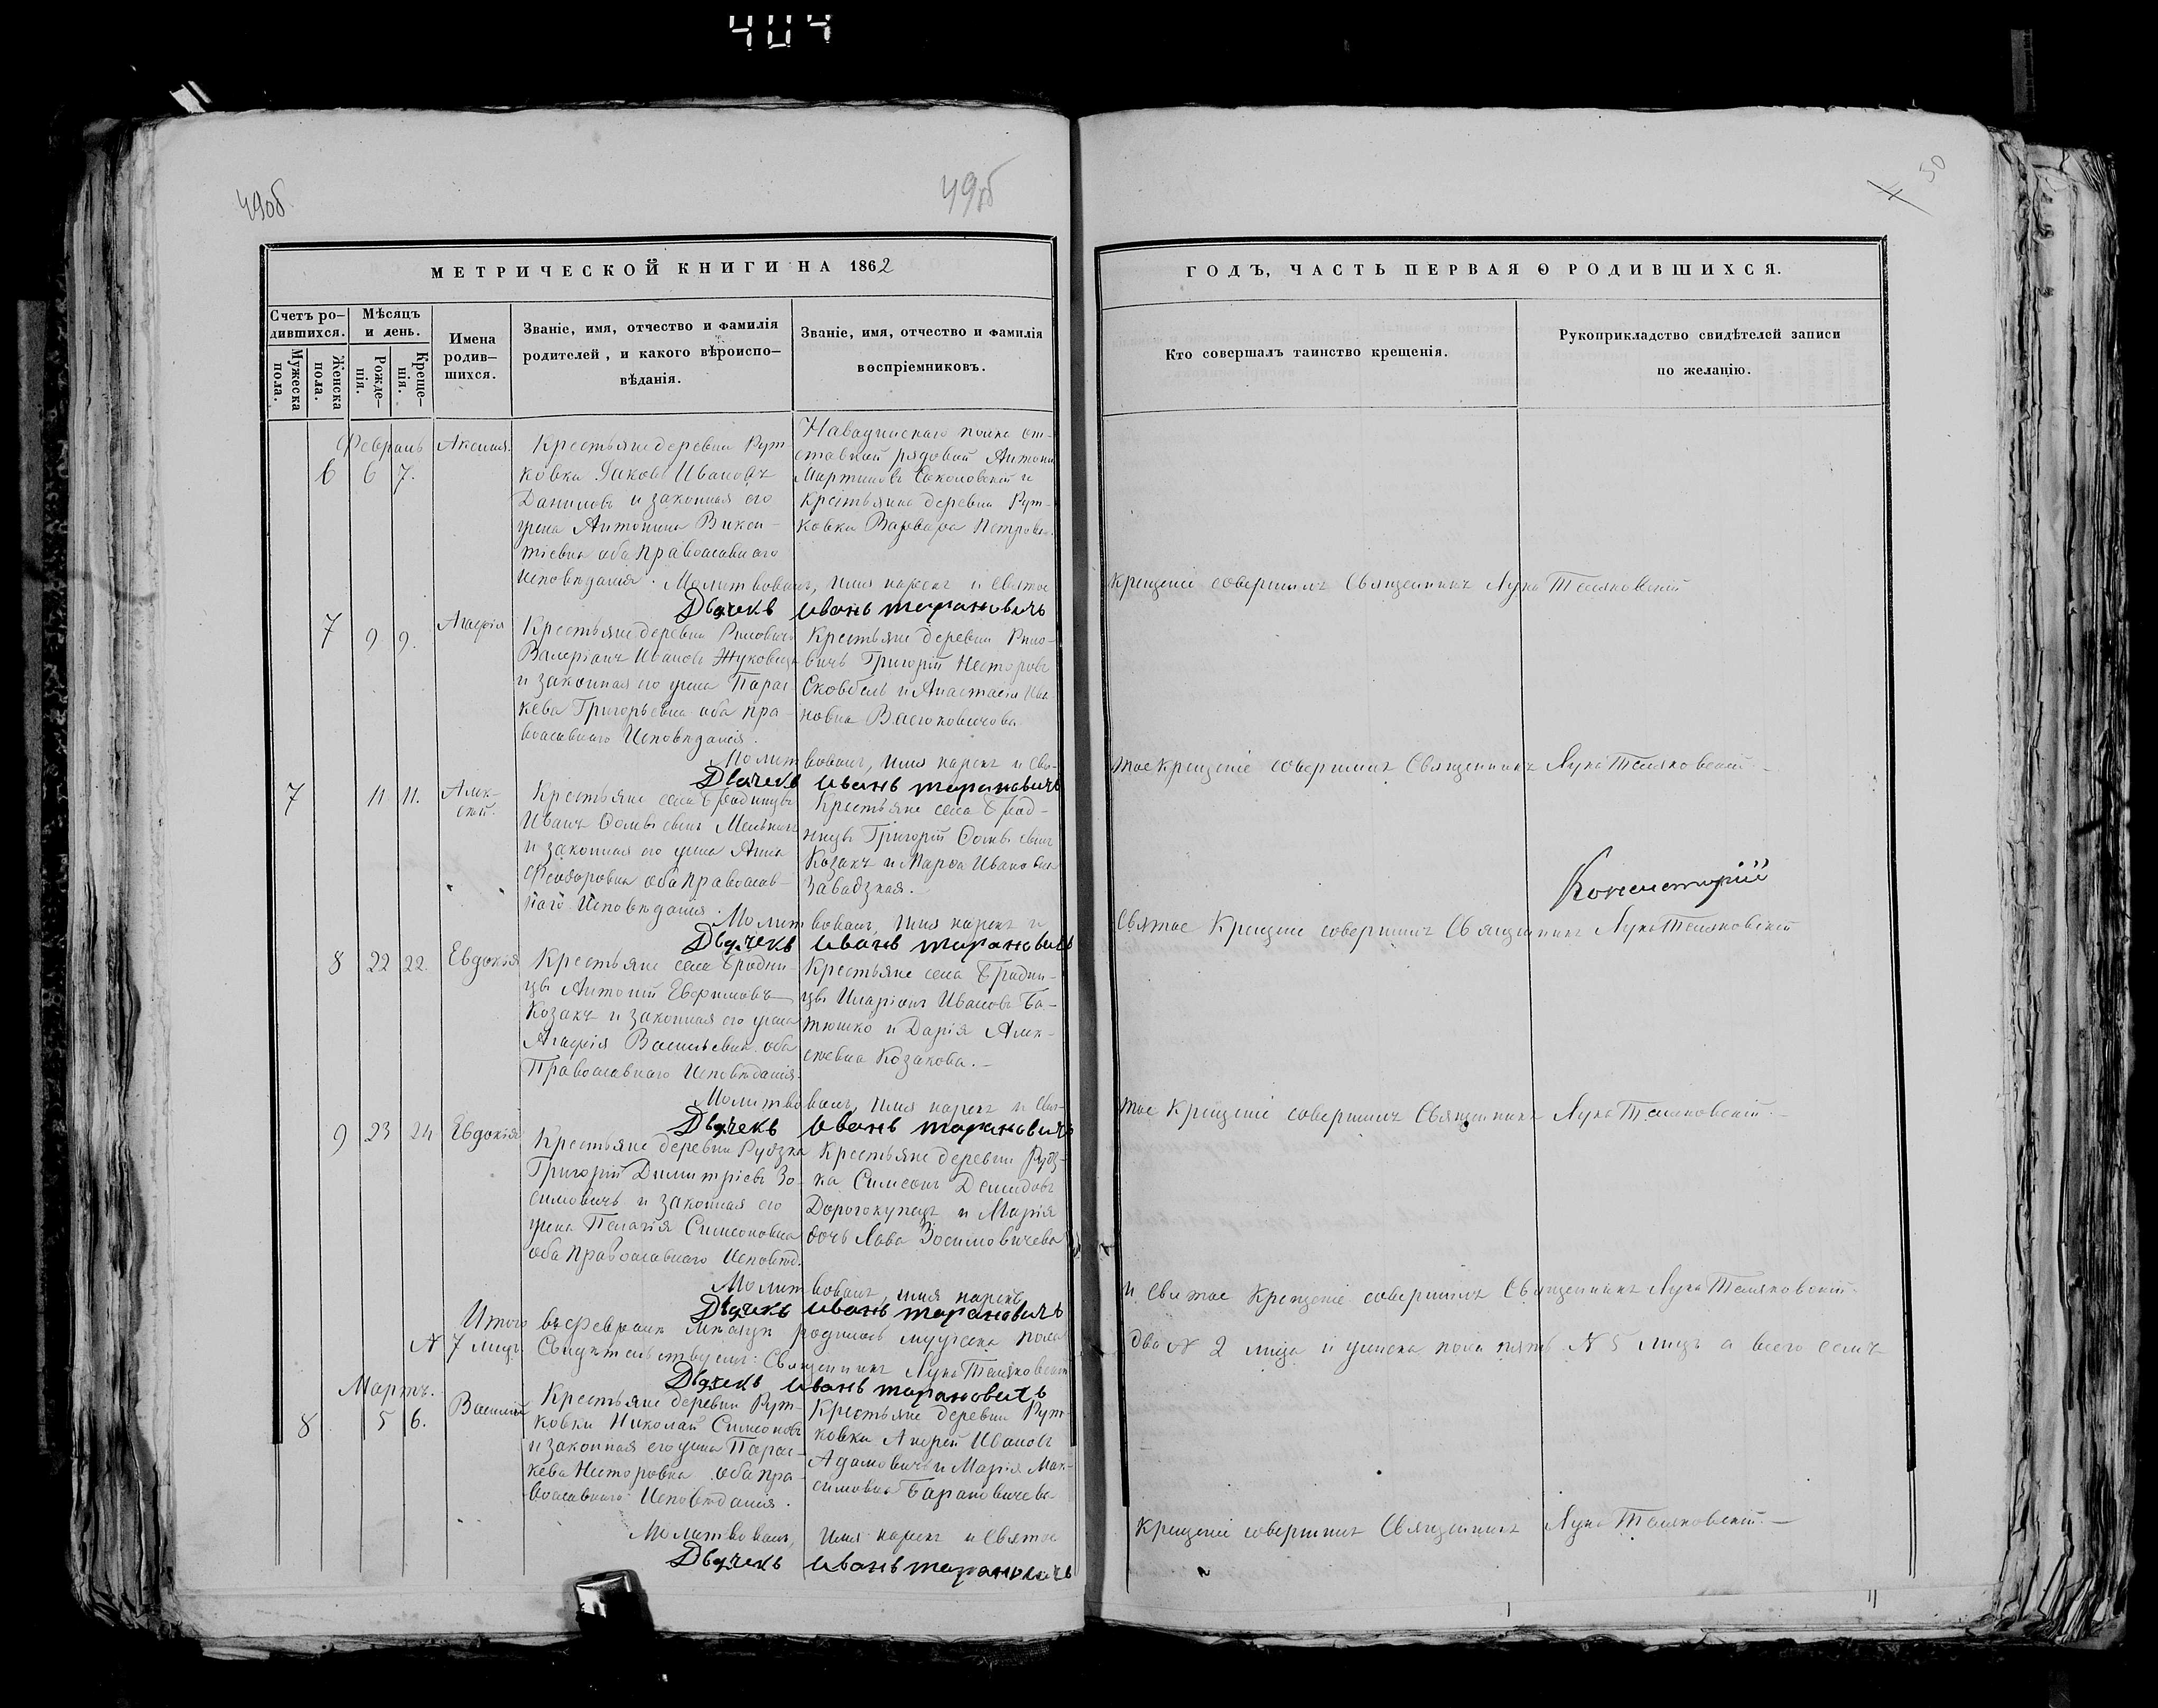 404
49об
49об
50
МЕТРИЧЕСКОЙ КНИГИ НА 1862
ГОДЪ, ЧАСТЬ ПЕРВАЯ О РОДИВШИХСЯ.
Счетъ ро-
дившихся.
Мужеска
пола.
Женска
пола.
Мѣсяцъ
и день.
Рожде-
нія.
Креще-
нія.
Имена
родив-
шихся.
Званіе, имя, отчество и фамилія
родителей, и какого вѣроиспо-
вѣданія.
Званіе, имя, отчество и фамилія
воспріемниковъ.
Кто совершалъ таинство крещенія.
Рукоприкладство свидѣтелей записи
по желанію.
Февраль
6 6 7.
Аксинія.
Крестьяне деревни Рут-
ковки Яковъ Ивановъ
Даниловъ и законная его
жена Антонина Викен-
тіевна оба православнаго
Исповѣданія.
Навагинскаго полка от-
ставной рядовой Антоній
Мартиновъ Соколовскій и
Крестьянка деревни Рут-
ковки Варвара Петрова.
Молитвовалъ, имя нарекъ и Святое Крещеніе совершилъ Священникъ Лука Теляковскій
Дьячекъ Иванъ тарановичъ
7 9 9.
Агафія
Крестьяне деревни
Валеріанъ Ивановъ Жуковецъ
и законная его жена Парас-
кева Григорьевна оба пра-
вославнаго Исповѣданія.
Крестьяне деревни
Григорій Несторовъ
и Анастасія Ива-
новна Васюковичова
Молитвовалъ, имя нарекъ и Свя-
тое крещеніе совершилъ Священникъ Лука Теляковскій
Дьячекъ Иванъ тарановичъ
7 11 11.
Алек-
сѣй.
Крестьяне села Бродницы
Иванъ
и законная его жена Анна
Феодоровна оба православ-
наго Исповѣданія.
Крестьяне села Брод-
ницы Григорій
Козакъ и Марѳа Ивановна
Завадзкая.
Консисторіи
Молитвовалъ, имя нарекъ и
Святое Крещеніе совершилъ Священникъ Лука Теляковскій
Дьячекъ Иванъ тарановичъ
8 22 22.
Евдокія
Крестьяне села Бродни-
цы Антоній Евфимовъ
Козакъ и законная его жена
Агафія Васильевна оба
Православнаго Исповѣданія.
Крестьяне села Бродни-
цы Иларіонъ Ивановъ Ба-
тюшко и Дарія Алек-
сѣевна Козакова.
Молитвовалъ, имя нарекъ и Свя-
тое Крещеніе совершилъ Священникъ Лука Теляковскій.
Дьячекъ Иванъ тарановичъ
9 23 24
Евдокія
Крестьяне деревни Рудзка
Григорій Димитріевъ Зо-
симовичъ и законная его
жена Пелагія Симеоновна
оба Православнаго Исповѣд.
Крестьяне деревни Рудз-
ка Симеонъ Демидовъ
Дорогокупецъ и Марія
дочь Зосимовичева
Молитвовалъ, имя нарекъ
и Святое Крещеніе совершилъ Священникъ Лука Теляковскій.
Дьячекъ Иванъ тарановичъ
Итого въ феврали мѣсяцѣ родилось мужеска пола
два № 2 лица и женска пола пять № 5 лицъ а всего семь
№ 7 лицъ. Свидѣтельствуемъ: Священникъ Лука Теляковскій
Дьячекъ Иванъ тарановичъ
Мартъ.
8 5 6.
Василій
Крестьяне деревни Рут-
ковки Николай Симеоновъ
и законная его жена Парас-
кева Несторовна оба пра-
вославнаго Исповѣданія.
Крестьяне деревни Рут-
ковки Андрей Ивановъ
Адамовичъ и Марія Мак-
симовна Барановичева
Молитвовалъ, имя нарекъ и Святое
Крещеніе совершилъ Священникъ Лука Теляковскій.
Дьячекъ Иванъ тарановичъ